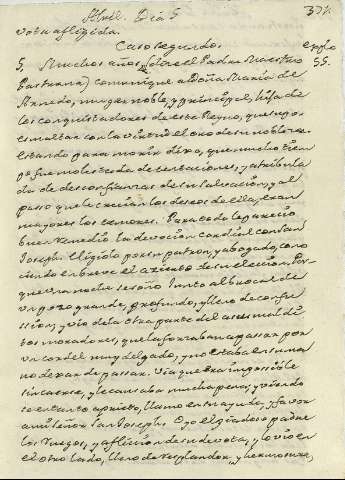 Abril. Dia 5
337.
vota afligida.
Caso segundo.
explo
55.
§ Muchos años, (dice el Padre Maestro
Pastrana) comunique a Doña Maria de
Arnedo, muger noble, y principal, hija de
los conquistadores de este Reyno, que supo
esmaltar con la virtud el oro de su nobleza.
estando para morir dixo, que mucho tiem
po fue molestada de tentaciones, y atribula
da de desconfianzas de su salvacion, y al
paso que le crecian los deseos de ella, eran
mayores los temores. Para todo le parecio
buen remedio la devocion cordial con San
Joseph. Eligiolo por su patron, y abogado, cono
ciendo en breve el acierto de su eleccion. Por
que una noche se soño junto al bocal de
un pozo grande, profundo, y lleno de confu
ssion, y vio de la otra parte del asse mil di
tos moradores, que la forzaban a passar por
un cordel muy delgado, y no estaba en su ma
no dexar de passar. Via que era impossible
sin caerse, y le causaba mucha pena, y viendo
se en tanto aprieto, llamo en su ayuda, y favor
a mi señor San Joseph. Oyo el piadoso padre
los ruegos, y afliccion de su devota, y lo vio en
el otro lado, lleno de resplandor, y hermosura,